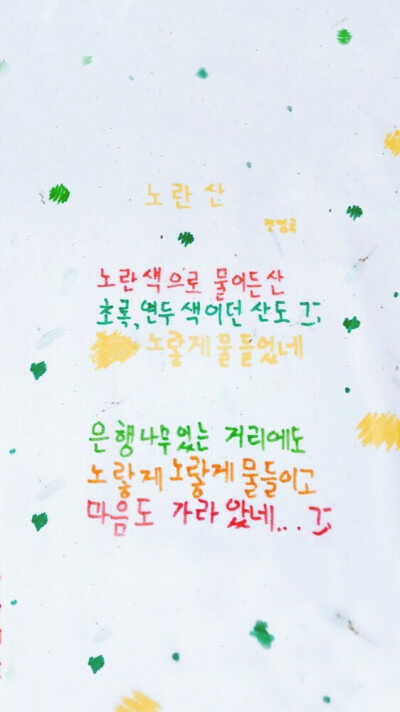 노란 산
노란색으로 물이든산
초록,연두 색이던 산도
노랗게물들었네
은행나무있는 거리에도
노랗게 노랗게 물들이고
마음도 가라 았네...